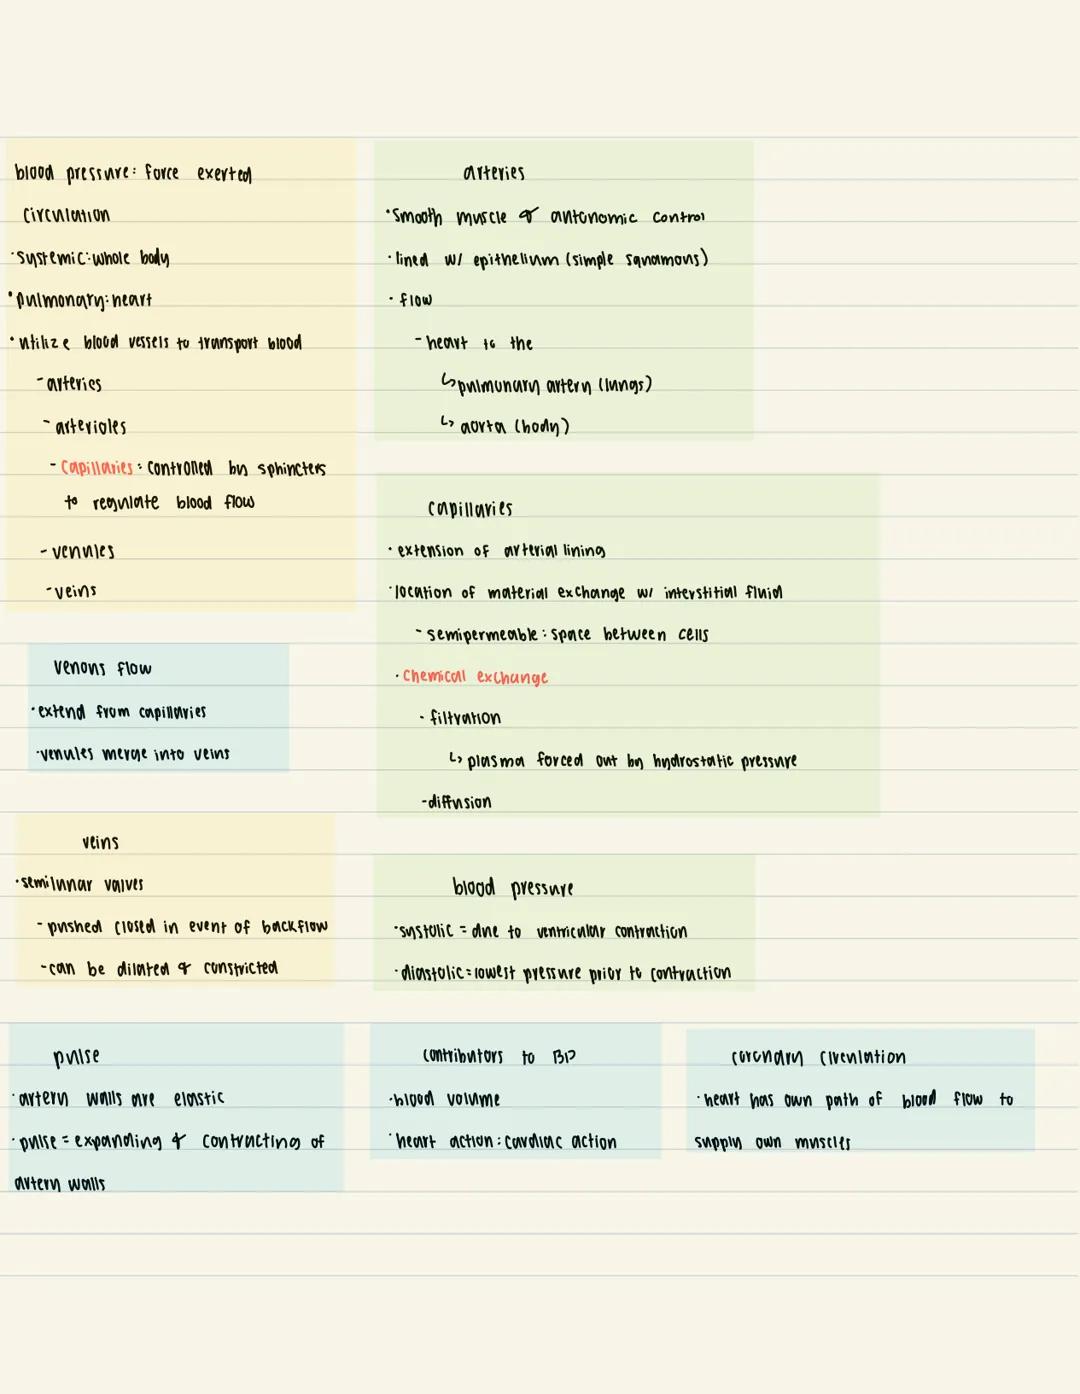 blood pressure: force exerted
circulation
·systemic: whole body
·pulmonary: heart
·utilize blood vessels to transport blood
-arteries
-arterioles
-capillaries: controlled by sphincters
to regulate blood flow
-venules
-veins
venous flow
·extend from capillaries
·venules merge into veins
veins
·semilunar valves
-pushed closed in event of backflow
-can be dilated & constricted
arteries
·smooth muscle & autonomic control
·lined w/ epithelium (simple squamous)
·flow
-heart to the
↳pulmonary artery (lungs)
↳ aorta (body)
capillaries
·extension of arterial lining
·location of material exchange w/ interstitial fluid
-semipermeable: space between cells
·chemical exchange
-filtration
↳ plasma forced out by hydrostatic pressure
-diffusion
blood pressure
·systolic = due to ventricular contraction
·diastolic = lowest pressure prior to contraction
pulse
·artery walls are elastic
·pulse = expanding & contracting of
artery walls
contributors to BP
·blood volume
·heart action: cardiac action
coronary circulation
·heart has own path of blood flow to
supply own muscles